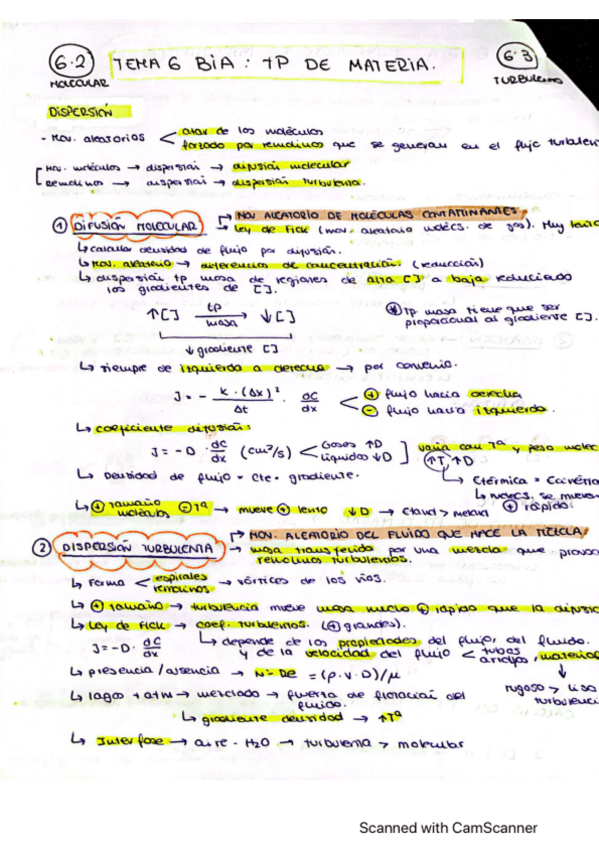 6.2 MOLECULAR
TEMA 6 BIA : TP DE MATERIA.
6.3 TURBULENTO
DISPERSIÓN
- Mov. aleatorios < azar de las moléculas
forzado por remolinos que se generan en el flujo turbulen
Mov. moléculas → dispersión → difusión molecular
Remolinos → dispersión → dispersión turbulenta.
① DIFUSIÓN MOLECULAR → MOV ALEATORIO DE MOLÉCULAS CONTAMINANTES.
→ Ley de Fick (mov. aleatorio moléc. de gas). Muy lento
↳ calcular densidad de flujo por difusión.
↳ Mov. aleatorio → diferencias de concentración. (reducción)
↳ dispersión tp masa de regiones de alta [] a baja reduciendo
los gradientes de [].
↑[] tp masa → ↓[]
⊛ Tp masa tiene que ser
proporcional al gradiente [].
↓ gradiente []
↳ siempre de izquierda a derecha → por convenio.
J = - k · (Δx)² / Δt · dC/dx < ⊕ flujo hacia derecha
⊖ flujo hacia izquierda.
↳ coeficiente difusión:
J = - D · dC/dx (cm²/s) < Gases ↑D
Líquidos ↓D ] varia con Tª y peso molec
↑T, ↑D
↳ Densidad de flujo = cte · gradiente.
↳ Ctérmica =
↳ moléc. se mueven
⊕ rápido.
↳ ⊕ tamaño moléculas ⊖ Tª → mueve ⊕ lento ↓D → etanol > metanol
② DISPERSIÓN TURBULENTA → MOV. ALEATORIO DEL FLUIDO QUE HACE LA MEZCLA.
→ masa transferida por una mezcla que provoc
remolinos turbulentos.
↳ Forma < espirales
remolinos → vórtices de los ríos.
↳ ⊕ tamaño → turbulencia mueve masa mucho ⊕ rápido que la difusió
↳ Ley de Fick → coef. turbulentos. (⊕ grandes).
J = - D · dC/dx
↳ depende de las propiedades del flujo, del fluido.
y de la velocidad del flujo < tubos
, material
rugoso > liso
turbulenci
↳ presencia / ausencia → Nº Re = (ρ · v · D) / μ
↳ lagos + atm → mezclado → fuerza de flotación del
fluido.
↳ gradiente densidad → ↑Tª
↳ Interfase → aire - H₂O → turbulenta > molecular
Scanned with CamScanner